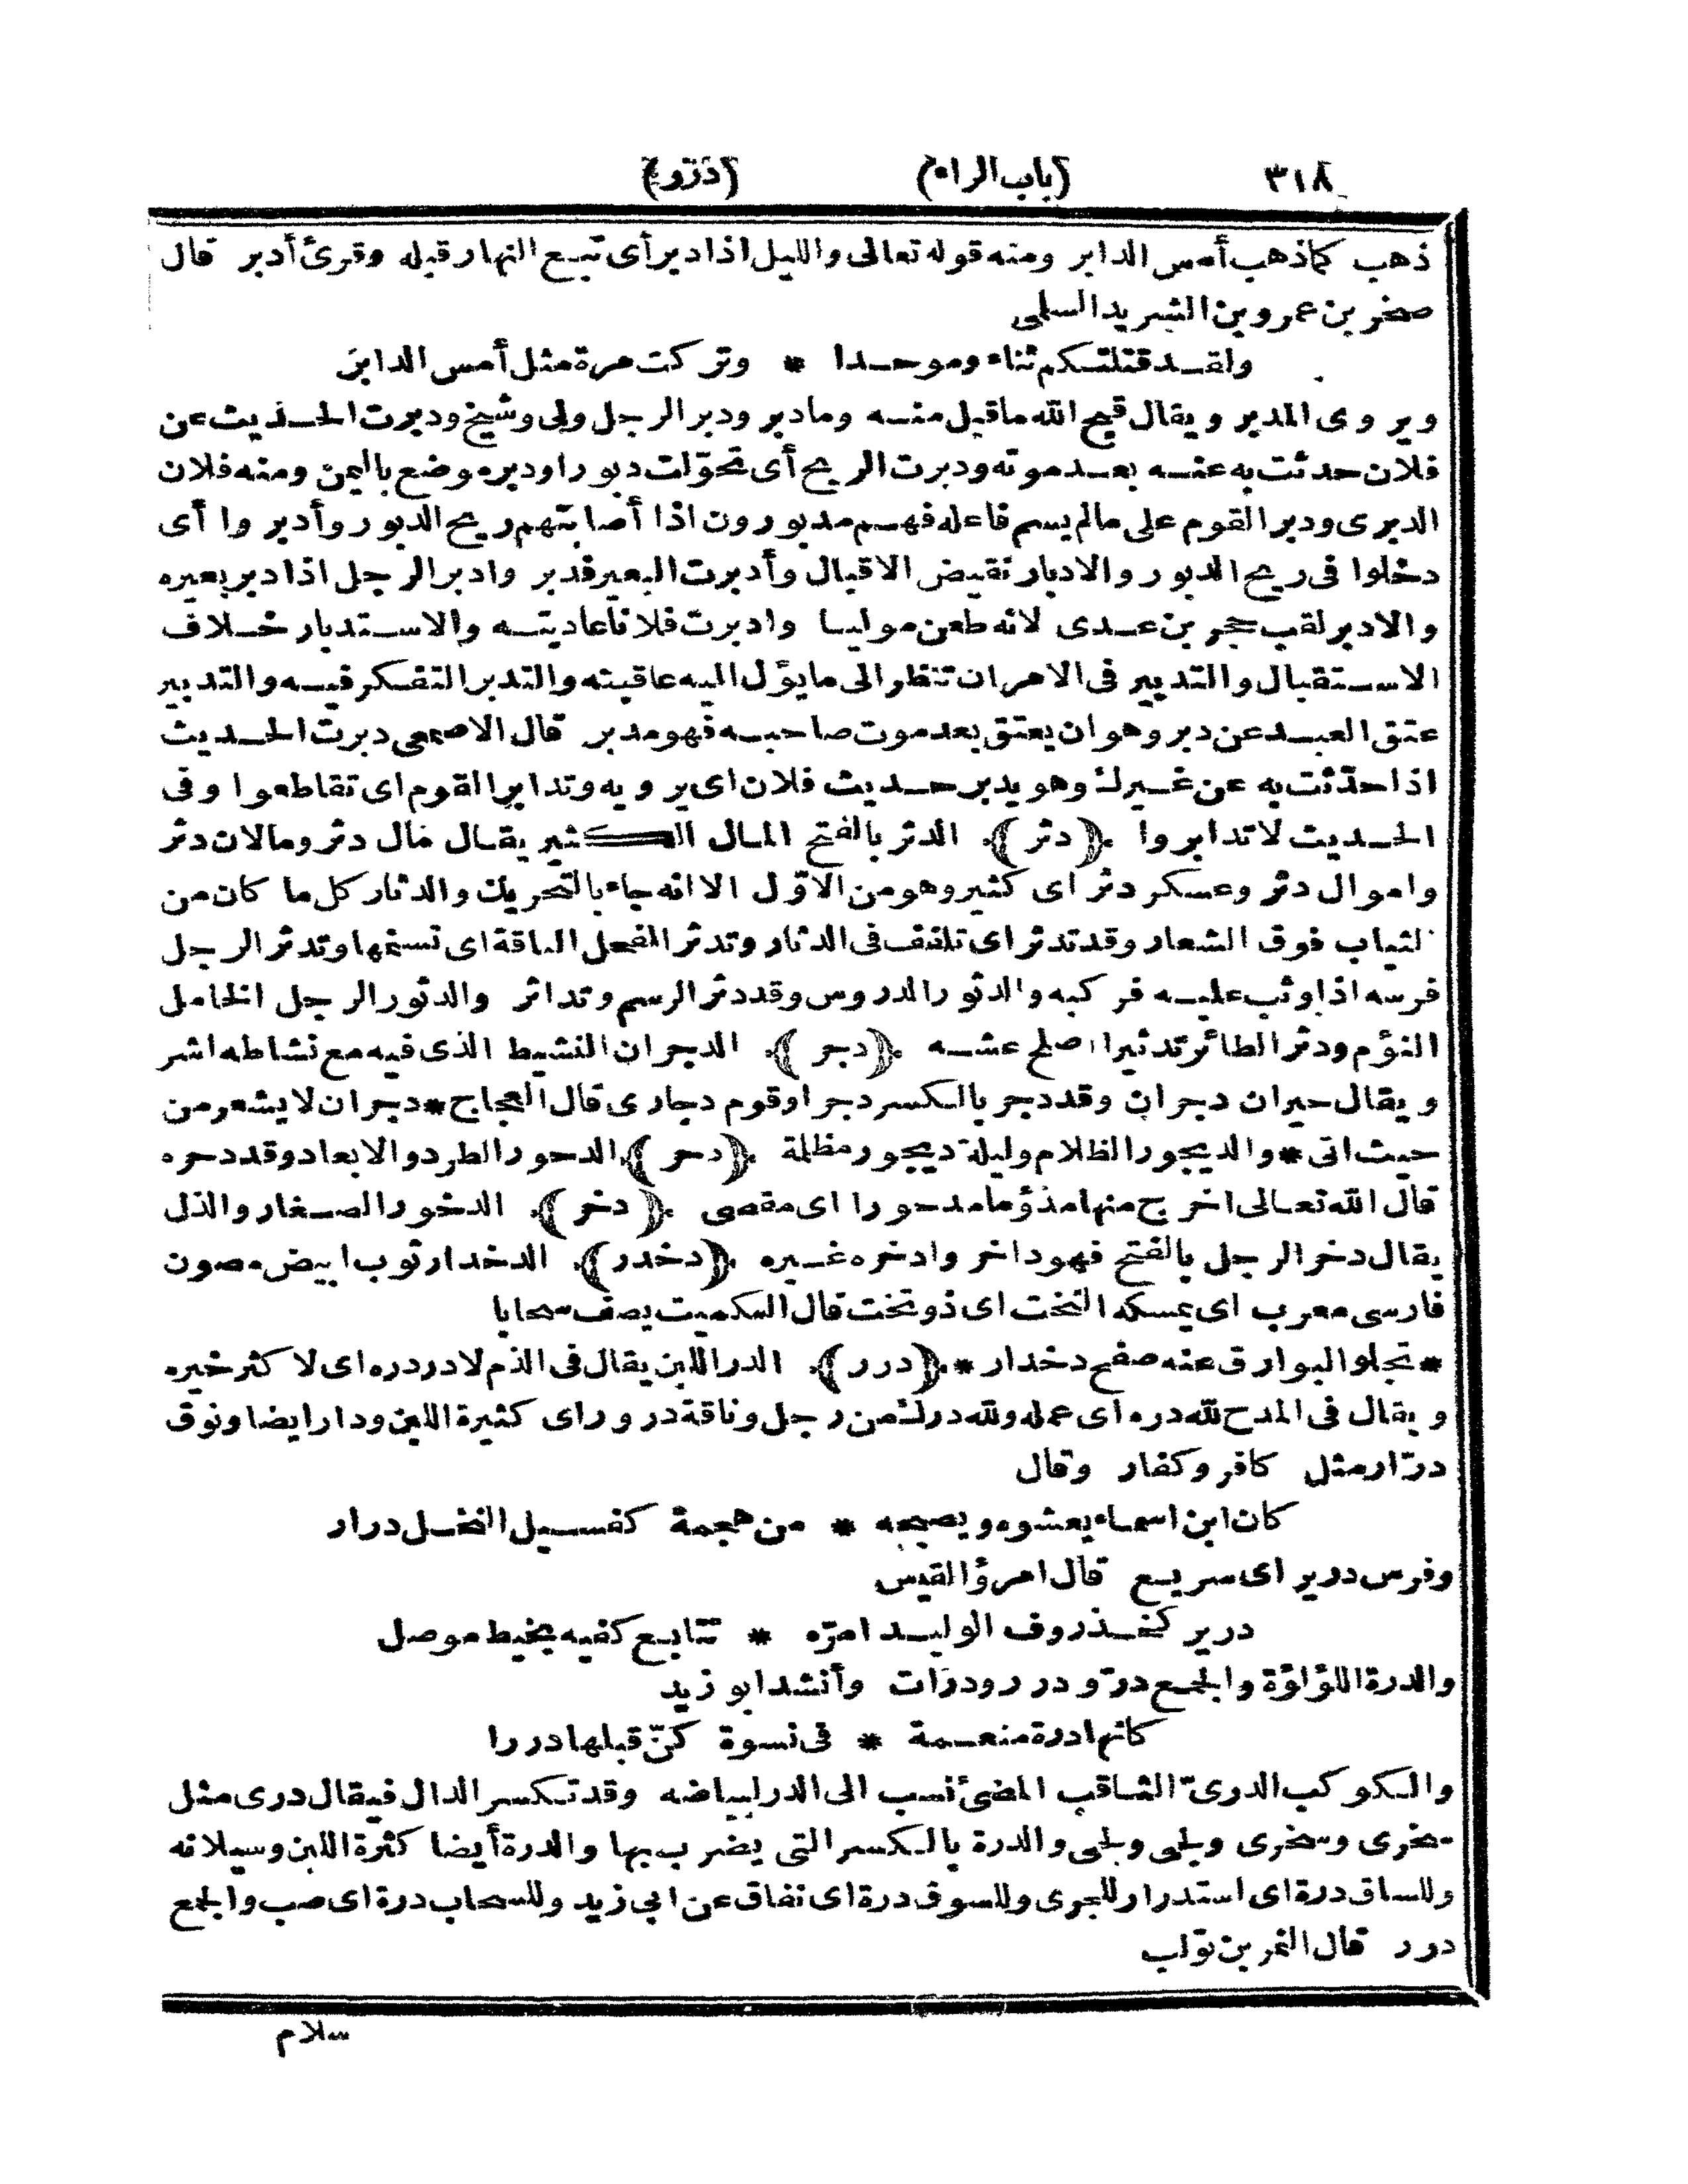 ٣١٨ (باب الراء) (درر)
ذهب كما ذهب أمس الدابر ومنه قوله تعالى والليل اذا دبر أى تبع النهار قبله وقرئ أدبر قال
صخر بن عمرو بن الشريد السلمى
ولقد قتلتكم ثناء وموحدا * وتركت مرة مثل أمس الدابر
ويروى المدبر ويقال قبح الله ما قبل منه وما دبر ودبر الرجل ولى وشيخ ودبرت الحديث عن
فلان حدثت به عنه بعد موته ودبرت الريح أى تحوّلت دبورا ودبره وضع باليمن ومنه فلان
الدبرى ودبر القوم على مالم يسم فاعله فهم مدبورون اذا أصابتهم ريح الدبور وأدبروا أى
دخلوا فى ريح الدبور والادبار نقيض الاقبال وأدبرت البعير فدبر وادبر الرجل اذا دبر بعيره
والادبر لقب حجر بن عدى لانه طعن موليا وادبرت فلانا عاديته والاستدبار خلاف
الاستقبال والتدبير فى الامر ان تنظر الى ما يؤل اليه عاقبته والتدبر التفكر فيه والتدبير
عتق العبد عن دبر وهو ان يعتق بعد موت صاحبه فهو مدبر قال الاصمعى دبرت الحديث
اذا حدّثت به عن غيرك وهو يدبر حديث فلان اى يرويه وتدابر القوم اى تقاطعوا وفى
الحديث لا تدابروا ﴿دثر﴾ الدثر بالفتح المال الكثير يقال مال دثر ومالان دثر
واموال دثر وعسكر دثر اى كثير وهو من الاوّل الا انه جاء بالتحريك والدثار كل ما كان من
الثياب فوق الشعار وقد تدثر اى تلفف فى الدثار وتدثر الفحل الناقة اى تسنمها وتدثر الرجل
فرسه اذا وثب عليه فركبه والدثور الدروس وقد دثر الرسم وتداثر والدثور الرجل الخامل
النؤم ودثر الطائر تدثيرا اصلح عشه ﴿دجر﴾ الدجران النشيط الذى فيه مع نشاطه اشر
ويقال حيران دجران وقد دجر بالكسر دجرا وقوم دجارى قال العجاج * دجران لا يشعر من
حيث اتى * والديجور الظلام وليلة ديجور مظلمة ﴿دحر﴾ الدحور الطرد والابعاد وقد دحره
قال الله تعالى اخرج منها مذؤما مدحورا اى مقصى ﴿دخر﴾ الدخور الصغار والذل
يقال دخر الرجل بالفتح فهو داخر وادخره غيره ﴿دخدر﴾ الدخدار ثوب ابيض مصون
فارسى معرب اى يمسكه التخت اى ذو تخت قال الكميت يصف سحابا
* تجلو البوارق عنه صفح دخدار * ﴿درر﴾ الدر اللبن يقال فى الذم لا در دره اى لا كثر خيره
ويقال فى المدح لله دره اى عمله ولله درك من رجل وناقة درور اى كثيرة اللبن ودار ايضا ونوق
درّار مثل كافر وكفار وقال
كان ابن اسماء يعشوه ويصبحه * من هجمة كفسيل النخل درار
وفرس درير اى سريع قال امرؤ القيس
درير كخذروف الوليد امرّه * تتابع كفيه بخيط موصل
والدرة اللؤلؤة والجمع درّ ودرر ودرّات وأنشد ابو زيد
كانها درة منعمة * فى نسوة كنّ قبلها دررا
والكوكب الدرىّ الثاقب المضئ نسب الى الدر لبياضه وقد تكسر الدال فيقال درى مثل
سخرى وسخرى ولجى ولجى والدرة بالكسر التى يضرب بها والدرة أيضا كثرة اللبن وسيلانه
وللساق درة اى استدرار للجرى وللسوق درة اى نفاق عن ابى زيد وللسحاب درة اى صب والجمع
درر قال النمر بن تولب
سلام